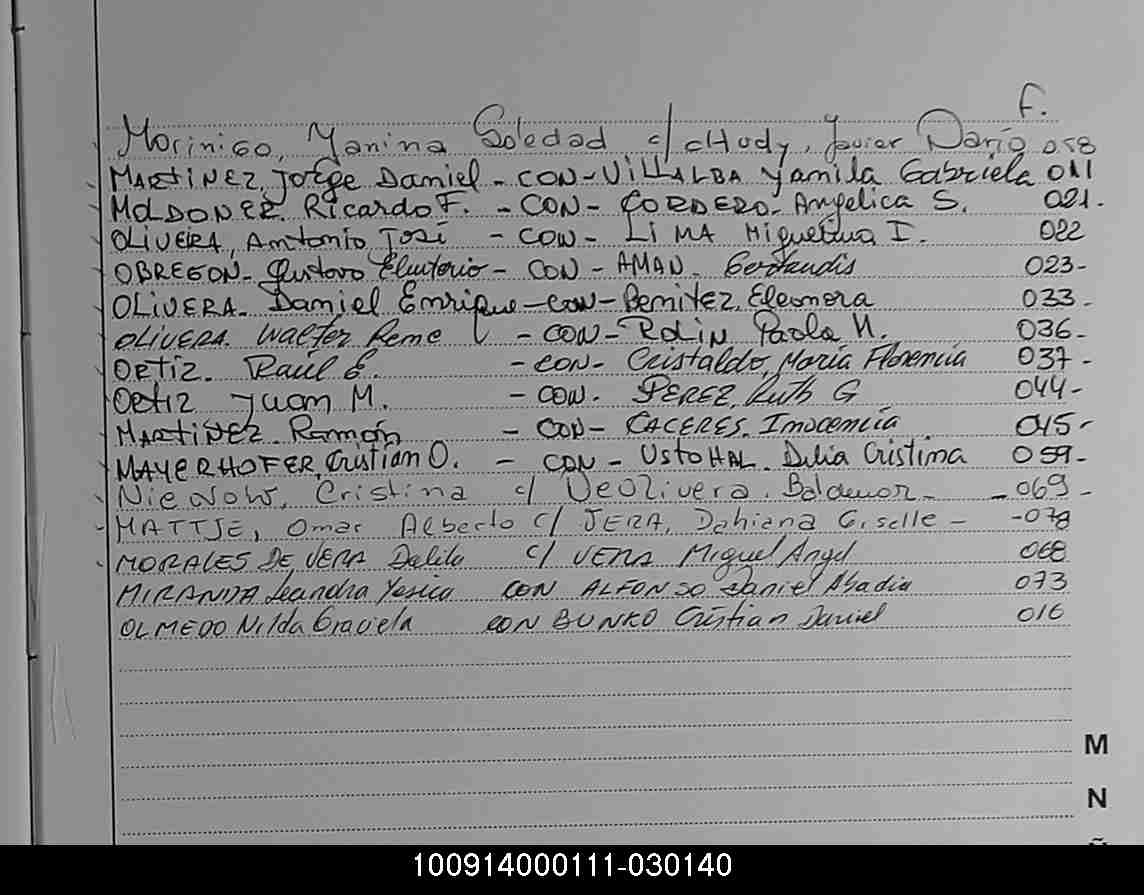 F.
Morinigo, Yanina Soledad c/ cHudy, Javier Darío 058
MARTINEZ, Jorge Daniel - CON - VILLALBA Yamila Gabriela 011
MOLDONEZ. Ricardo F. - CON - CORDERO - Angelica S. 021-
OLIVEIRA, Antonio José - CON - LIMA Miguelina I. 022
OBREGON - Gustavo Eluterio - CON - AMAN - Gertrudis 023-
OLIVERA - Daniel Enrique - CON - Benitez, Eleonora 033-
OLIVERA. Walter Rene - CON - ROLIN Paola M. 036-
ORTIZ. Raúl E. - CON - Cristaldo, María Florencia 037-
ORTIZ Juan M. - CON. PEREZ, Ruth G 044-
MARTINEZ - Ramón - CON - CACERES, Inocencia 045-
MAYERHOFER, Cristian O. - CON - Delia Cristina 059-
Cristina c/ DeOlivera. - 069-
MATTJE, Omar Alberto c/ JERA, Dahiana Giselle - -078
MORALES DE VERA Delila c/ VERA Miguel Angel 068
MIRANDA Leandra Yesica CON ALFONSO Daniel Abadia 073
OLMEDO Nilda Graciela CON BUNKO Cristian Daniel 016
M
N
100914000111-030140